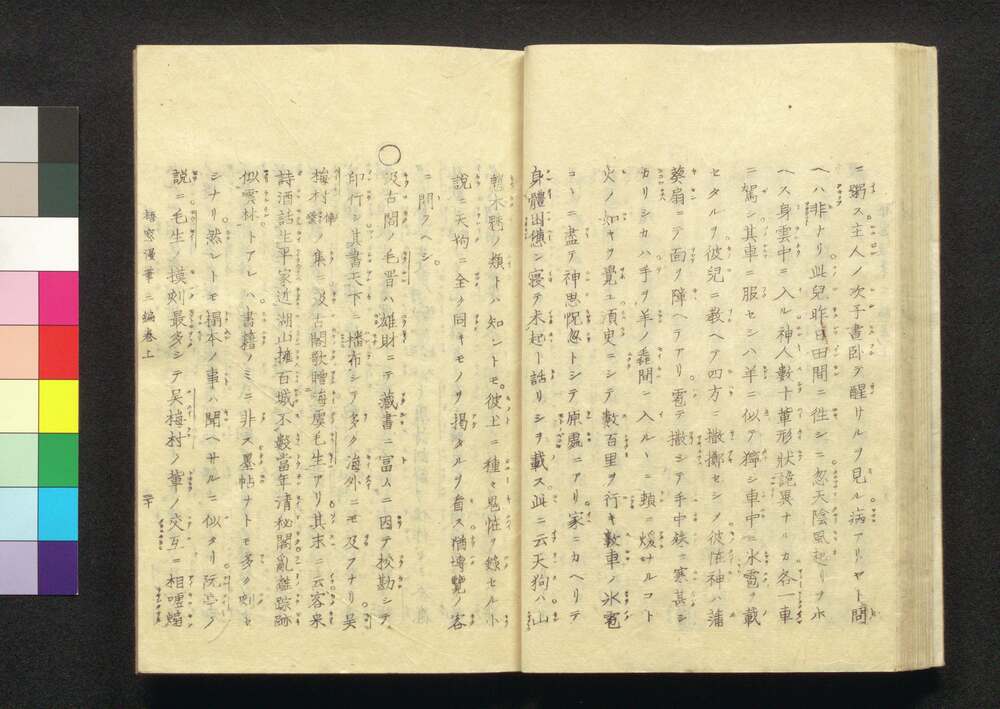 ニ粥ス主人ノ次子晝臥テ醒サルヲ見ル病アリヤト問
ヘハ非ナリ此兒昨日田間ニ往シニ忽天陰風起リヲ氷
ヘス身雲中ニ入ル神人數十輩形狀詭異ナルカ各一車
ニ駕シ其車ニ服セシハ羊ニ似テ獰シ車中ニ氷雹ヲ載
セタルヲ彼兒ニ教ヘテ四方ニ撒擲セシム彼怪神ハ蒲
葵扇ニテ面ヲ障ヘテアリ雹ヲ撒シテ手中殊ニ寒甚シ
カリシカハ手ヲ羊ノ毳間ニ入ルヽニ頼ニ煖サルコト
火ノ如ヤク覺ユ須臾ニシテ數百里ヲ行キ數車ノ氷雹
コヽニ盡テ神思怳忽トシテ原處ニアリ家ニカヘリテ
身體困憊シ寝テ未起ト話リシヲ載ス此ニ云天狗ハ山
魈木魅ノ類トハ知ントモ彼土ニ種々鬼怪ヲ錄セル小
説ニ天狗ニ全ク同キモノヲ掲タルヲ省ス猶博覽ノ客
ニ問フヘシ
○汲古閣ノ毛晋ハ雄財ニテ藏書ニ富人ニ因テ校勘シテ
印行シ其書天下ニ播布シテ多ク海外ニモ及フナリ吴
梅村偉業ノ集ニ汲古閣歌贈海虞毛生アリ其末ニ云客來
詩酒話生平家近湖山擁百城不數當年清秘閣亂離踪跡
似雲林トアレハ書籍ノミニ非ス墨帖ナトモ多ク刻セ
シナリ然レトモ搨本ノ事ハ聞ヘサルニ似タリ阮亭ノ
説ニ毛生ノ摸刻最多シテ吴梅村ノ輩ノ交互ニ相
梧窓漫筆二編卷上
二十